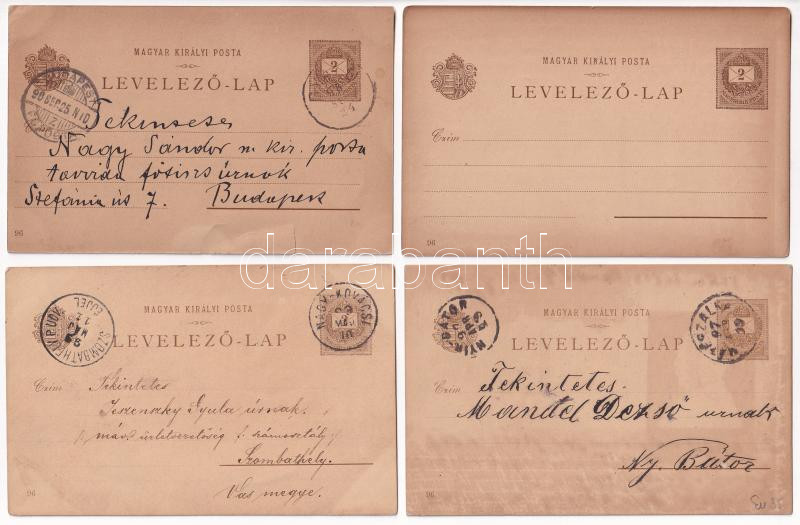 MAGYAR KIRÁLYI POSTA
LEVELEZŐ-LAP
2
BUDAPEST
96 SEP. 25 N10
Tekintetes
Nagy Sándor m. kir. posta
távirda főtiszt úrnak
Stefánia út 7. Budapest
96
MAGYAR KIRÁLYI POSTA
LEVELEZŐ-LAP
2
Czím
96
darabanth
MAGYAR KIRÁLYI POSTA
LEVELEZŐ-LAP
NAGY-KOVÁCSI
SZOMBATHELY
ÉJJEL
Czím
Tekintetes
Jeszenszky Gyula úrnak
máv. üzletvezetőség
Szombathely.
Vas megye.
96
MAGYAR KIRÁLYI POSTA
LEVELEZŐ-LAP
NYIR-BÁTOR
MÁTÉSZALKA
Czím
Tekintetes
Mandel Dezső urnak
Ny. Bátor
96